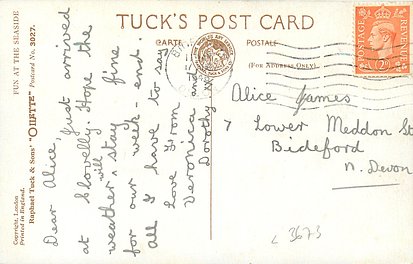 TUCK'S POST CARD
CARTE POSTALE
(FOR ADDRESS ONLY)
FUN AT THE SEASIDE
Raphael Tuck & Sons' "OILETTE" Postcard No. 3027.
Copyright, London
Printed in England.
Dear Alice, just arrived
at Clovelly. Hope the
will
weather ^ stay fine
for our week-end.
all I have to say
Love from
Veronica and
Dorothy
POSTAGE
REVENUE
2D
Alice James
7 Lower Meddon St
Bideford
N. Devon
3673